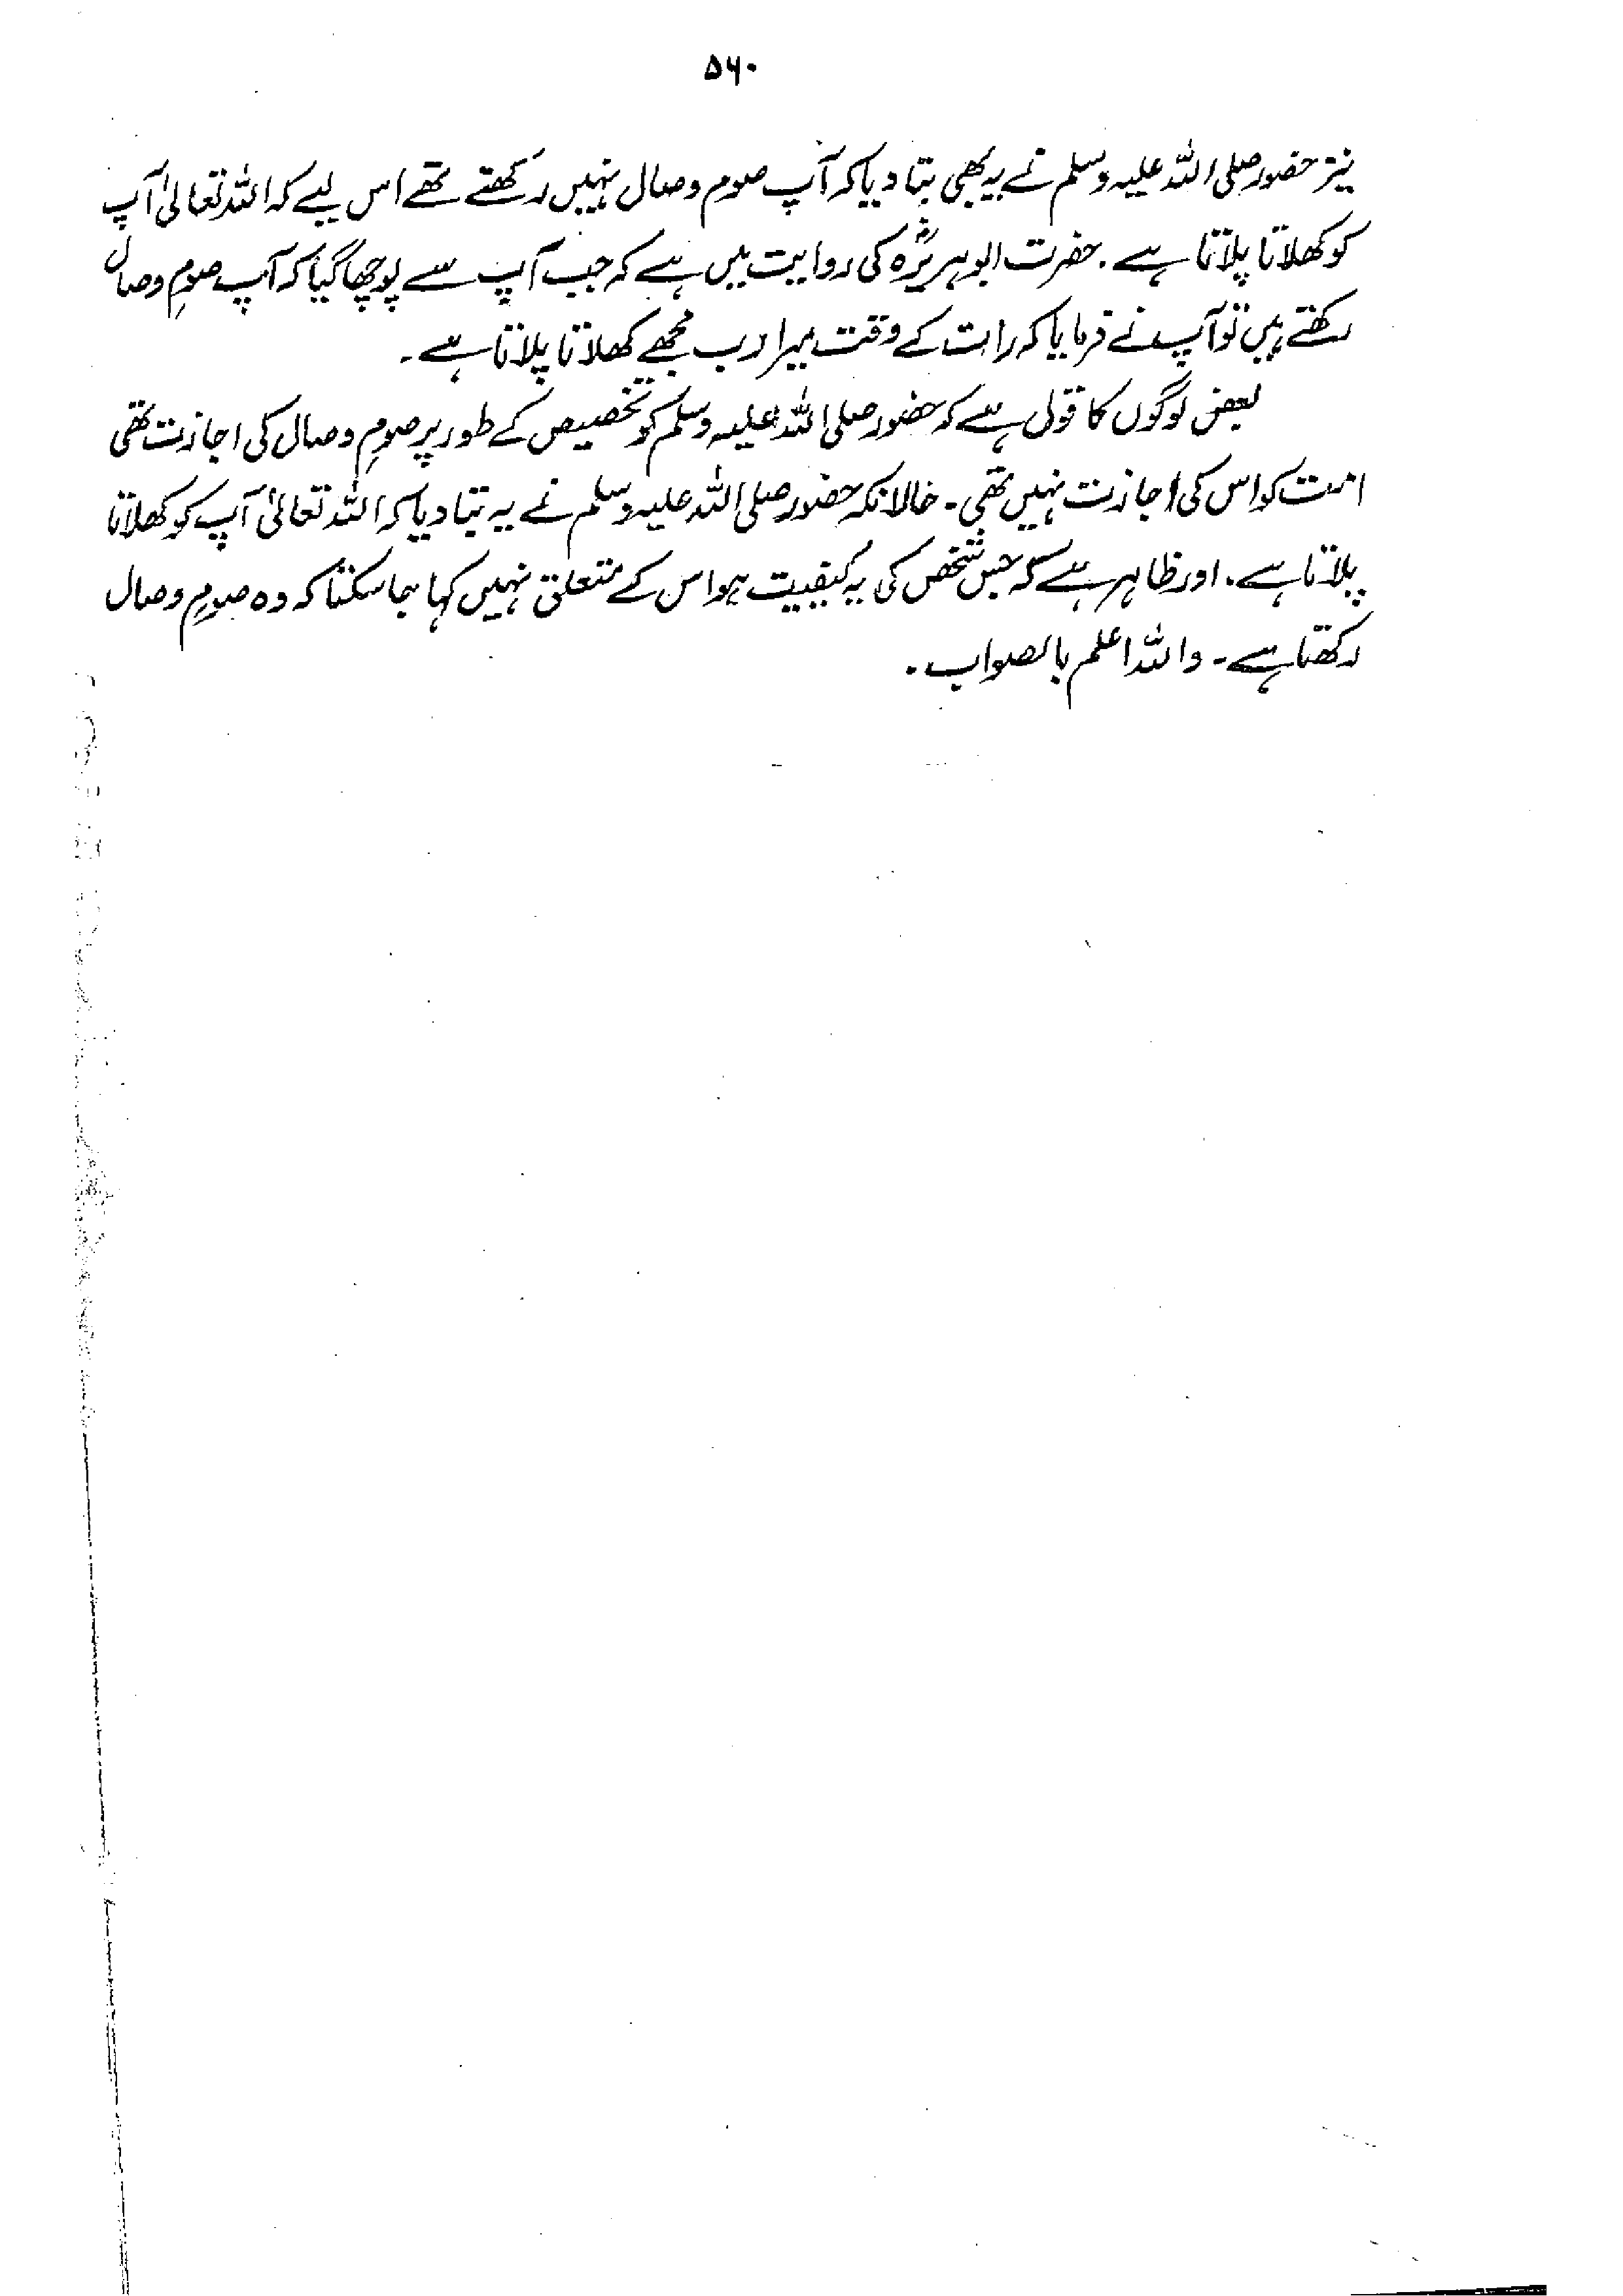 ۵۶۰
نیز حضور صلی اللہ علیہ وسلم نے یہ بھی بتا دیا کہ آپ صوم وصال نہیں رکھتے تھے اس لیے کہ اللہ تعالیٰ آپ
کو کھلاتا پلاتا ہے۔ حضرت ابوہریرہؓ کی روایت میں ہے کہ جب آپ سے پوچھا گیا کہ آپ صومِ وصال
رکھتے ہیں تو آپ نے فرمایا کہ رات کے وقت میرا رب مجھے کھلاتا پلاتا ہے۔
بعض لوگوں کا قول ہے کہ حضور صلی اللہ علیہ وسلم کو تخصیص کے طور پر صومِ وصال کی اجازت تھی
امت کو اس کی اجازت نہیں تھی۔ حالانکہ حضور صلی اللہ علیہ وسلم نے یہ بتا دیا کہ اللہ تعالیٰ آپ کو کھلاتا
پلاتا ہے۔ اور ظاہر ہے کہ جس شخص کی یہ کیفیت ہو اس کے متعلق نہیں کہا جا سکتا کہ وہ صومِ وصال
رکھتا ہے۔ واللہ اعلم بالصواب۔